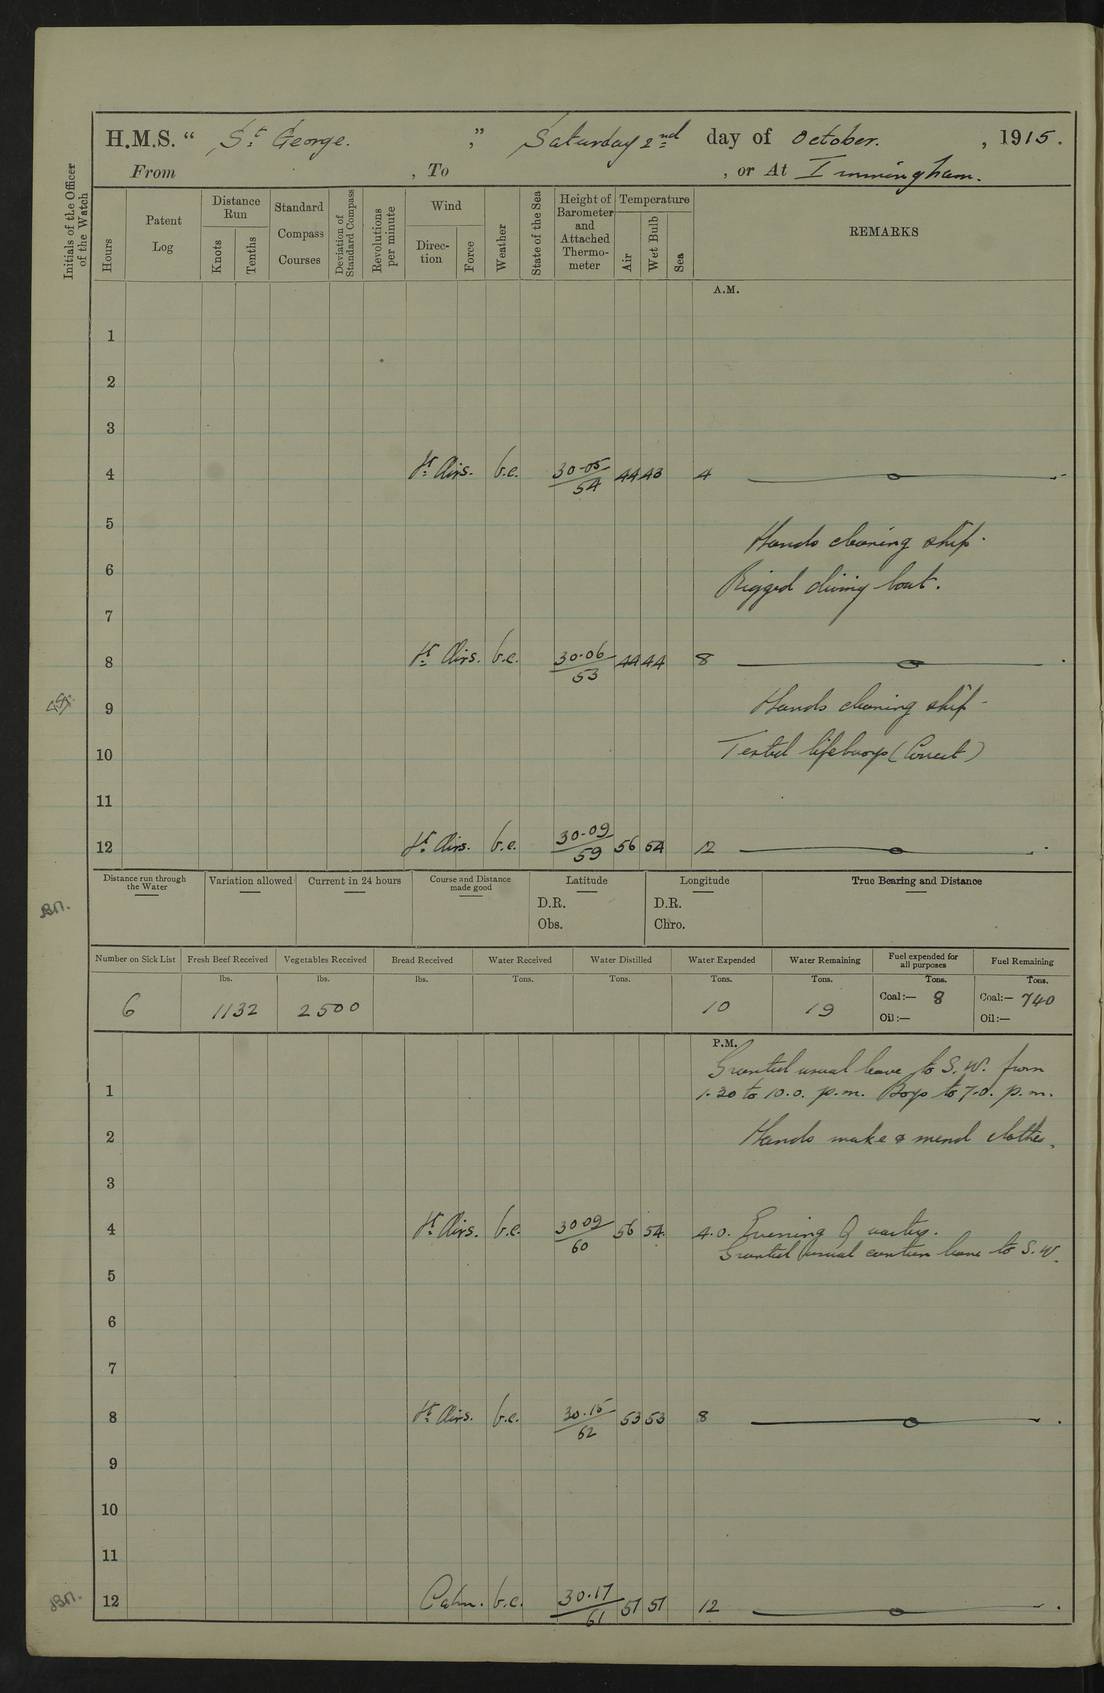 H.M.S. “ St. George. ,” Saturday 2nd day of October. , 1915.
From , To , or At Immingham.
Initials of the Officer of the Watch
Hours
Patent Log
Distance Run
Knots
Tenths
Standard Compass Courses
Deviation of Standard Compass
Revolutions per minute
Wind
Direction
Force
Weather
State of the Sea
Height of Barometer and Attached Thermometer
Temperature
Air
Wet Bulb
Sea
REMARKS
A.M.
1
2
3
4 Lt. Airs. b.c. 30.05/54 44 43 4
5 Hands cleaning ship.
6 Rigged diving boat.
7
8 Lt. Airs. b.c. 30.06/53 44 44 8
9 Hands cleaning ship
10 Tested lifebuoys (Correct)
11
12 Lt. Airs. b.c. 30.09/59 56 54 12
Distance run through the Water
Variation allowed
Current in 24 hours
Course and Distance made good
Latitude
D.R.
Obs.
Longitude
D.R.
Chro.
True Bearing and Distance
Number on Sick List
Fresh Beef Received
Vegetables Received
Bread Received
Water Received
Water Distilled
Water Expended
Water Remaining
Fuel expended for all purposes
Fuel Remaining
lbs. lbs. lbs. Tons. Tons. Tons. Tons. Tons. Tons.
6 1132 2500 10 19 Coal:— 8 Coal:— 740
Oil:— Oil:—
P.M.
Granted usual leave to S.W. from
1 1.30 to 10.0. p.m. Boys to 7.0. p.m.
2 Hands make & mend clothes.
3
4 Lt. Airs. b.c. 30.09/60 56 54 4.0. Evening Quarters.
Granted usual canteen leave to S.W.
5
6
7
8 Lt. Airs. b.c. 30.15/62 53 53 8
9
10
11
12 Calm. b.c. 30.17/61 51 51 12